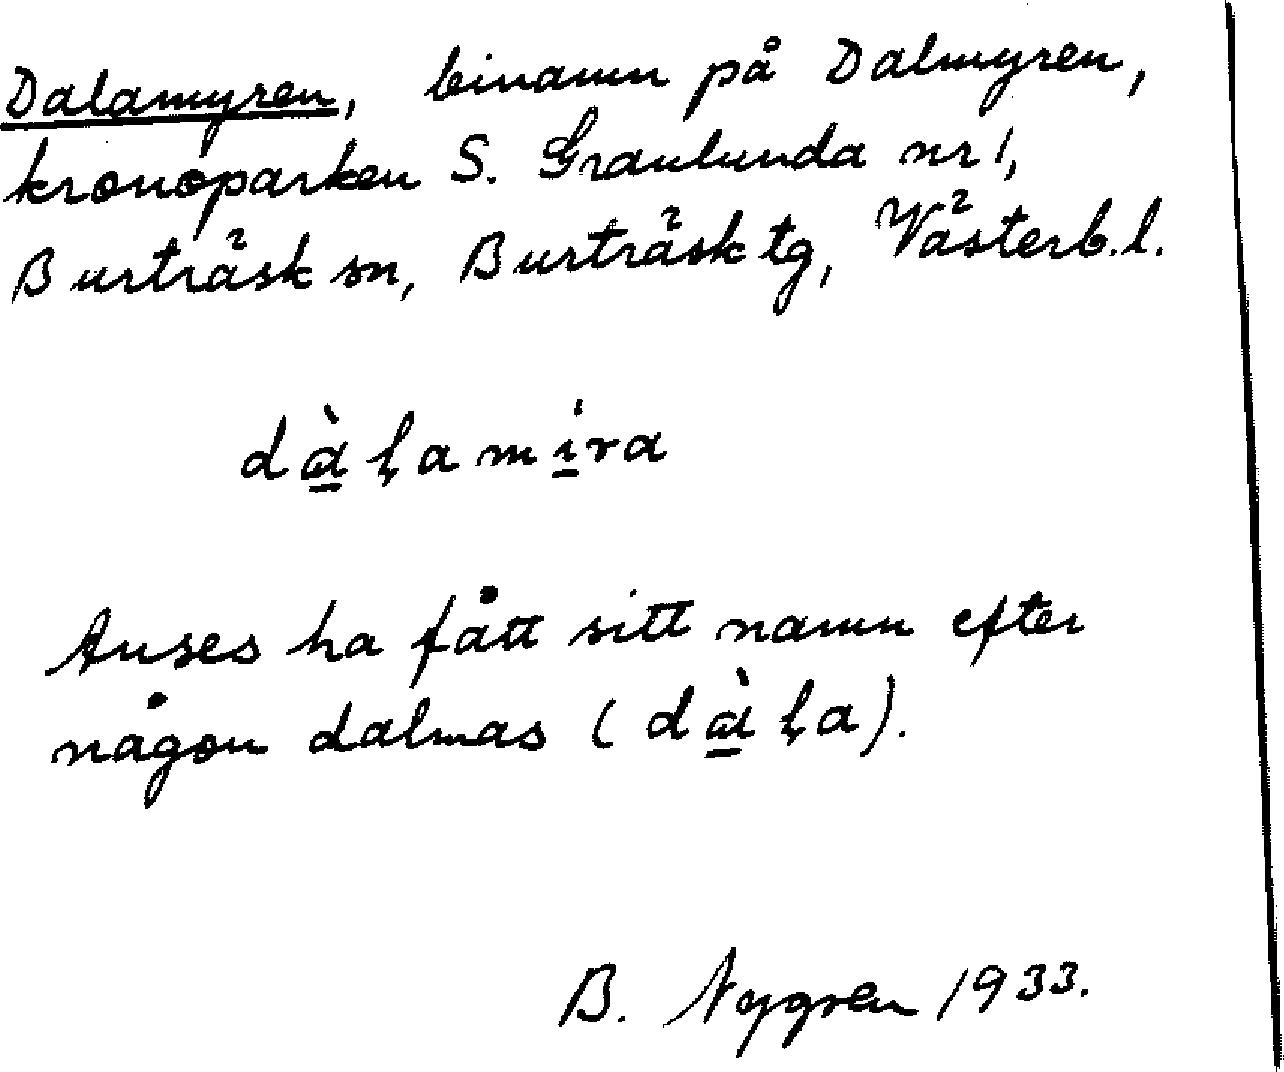 Dalamyren, binamn på Dalmyren,
kronoparken S. Granlunda nr 1,
Burträsk sn, Burträsk tg, Västerb.l.
dàḷamira
Anses ha fått sitt namn efter
någon dalmas (dàḷa).
B. Nygren 1933.